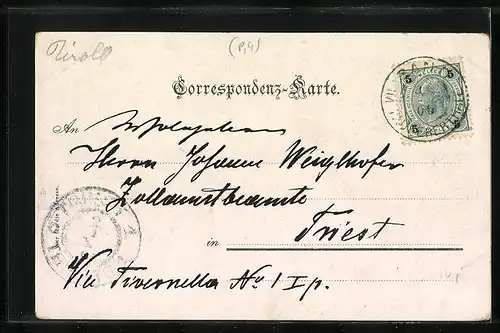 Tirol
(B4)
Correspondenz-Karte.
An Wohlgeboren
Herrn Johann Weiglhofer
Zollamtsbeamte
in Triest
Via Tivernella No 1 I p.
5 5
5 5